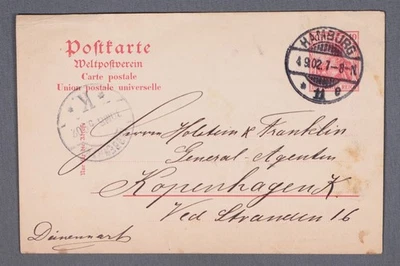 Postkarte
Weltpostverein
Carte postale
Union postale universelle
HAMBURG
4.9.02.7-8-N
* 11 e
K
Herren Holstein & Franklin
General-Agenten
Kopenhagen K.
Ved Stranden 16
Dänemark